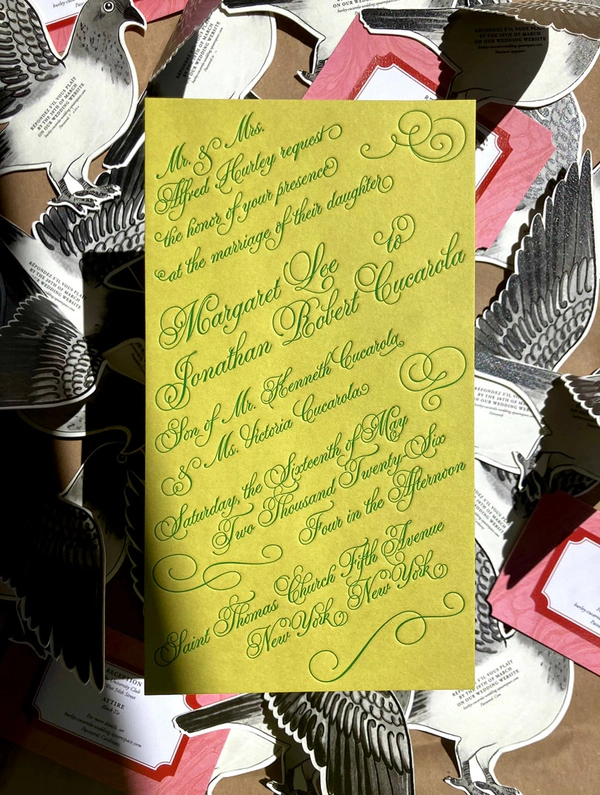 Mr. & Mrs.
Alfred Hurley request
the honor of your presence
at the marriage of their daughter
Margaret Lee
to
Jonathan Robert Cucarola
Son of Mr. Kenneth Cucarola
& Ms. Victoria Cucarola
Saturday, the Sixteenth of May
Two Thousand Twenty-Six
Four in the Afternoon
Saint Thomas Church Fifth Avenue
New York New York
RÉPONDEZ S'IL VOUS PLAÎT
BY THE 28TH OF MARCH
ON OUR WEDDING
WEBSITE
RÉPONDEZ S'IL VOUS PLAÎT
BY THE 28TH OF MARCH
ON OUR WEDDING
WEBSITE
RÉPONDEZ S'IL VOUS PLAÎT
BY THE 28TH OF MARCH
ON OUR WEDDING WEBSITE
RECEPTION
University Club
ATTIRE
Black Tie